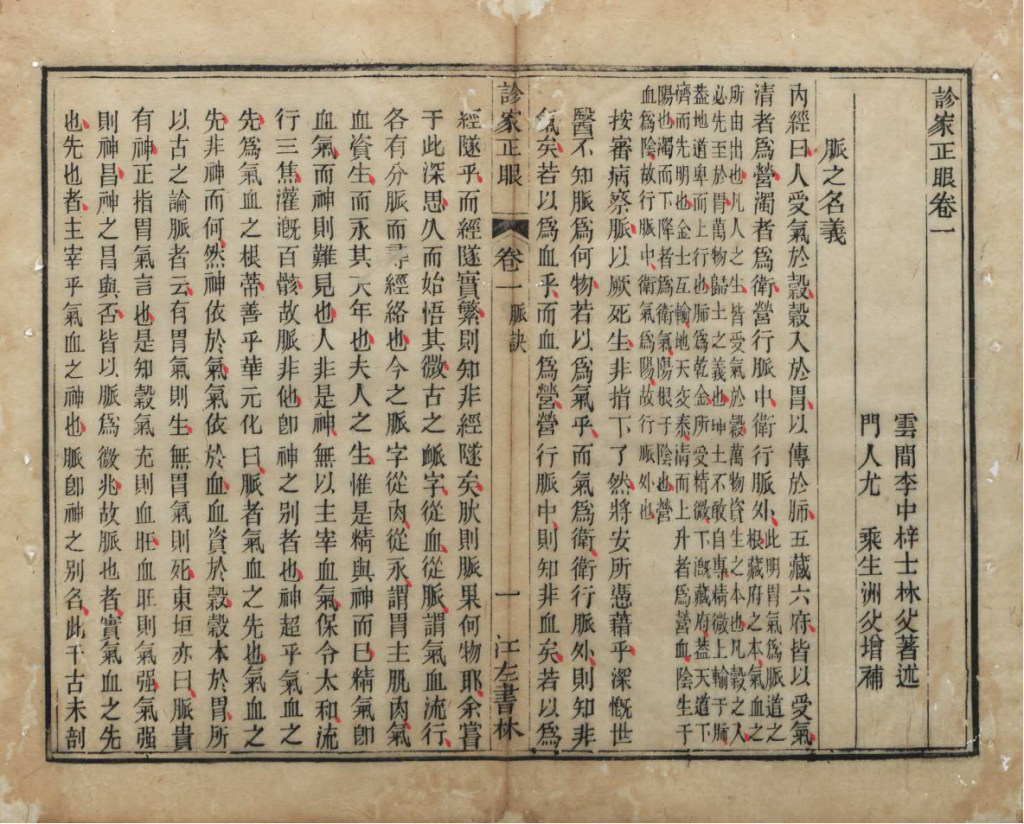 診家正眼卷一
雲間李中梓士林父著述
門人尤　乘生洲父增補
脈之名義
內經曰人受氣於穀穀入於胃以傳於肺五藏六府皆以受氣
清者爲營濁者爲衛營行脈中衛行脈外此明胃氣爲脈道之根藏府之本氣血之
所由出也凡人之生皆受氣於穀萬物資生之本也凡穀之入
必先至於胃萬物歸土之義也坤土不敢自專精微上輸于肺
葢地道卑而上行也肺爲乾金所受精微下溉藏府葢天道下
儕而先明也金土互輸地天交泰清而上升者爲營血陰生于
陽也濁而下降者爲衛氣陽根于陰也營
血爲陰故行脈中衛氣爲陽故行脈外也
按審病察脈以厥死生非指下了然將安所憑藉乎深慨世
醫不知脈爲何物若以爲氣乎而氣爲衛衛行脈外則知非
氣矣若以爲血乎而血爲營營行脈中則知非血矣若以爲
診家正眼　卷一　脈訣　一　江左書林
經隧乎而經隧實繁則知非經隧矣肰則脈果何物耶余嘗
于此深思久而始悟其微古之衇字從血從脈謂氣血流行
各有分脈而尋經絡也今之脈字從肉從永謂胃主肌肉氣
血資生而永其天年也夫人之生惟是精與神而巳精氣卽
血氣而神則難見也人非是神無以主宰血氣保令太和流
行三焦灌漑百骸故脈非他卽神之别者也神超乎氣血之
先爲氣血之根蒂善乎華元化曰脈者氣血之先也氣血之
先非神而何然神依於氣氣依於血血資於穀穀本於胃所
以古之論脈者云有胃氣則生無胃氣則死東垣亦曰脈貴
有神正指胃氣言也是知穀氣充則血旺血旺則氣强氣强
則神昌神之昌與否皆以脈爲徵兆故脈也者實氣血之先
也先也者主宰乎氣血之神也脈卽神之别名此千古未剖